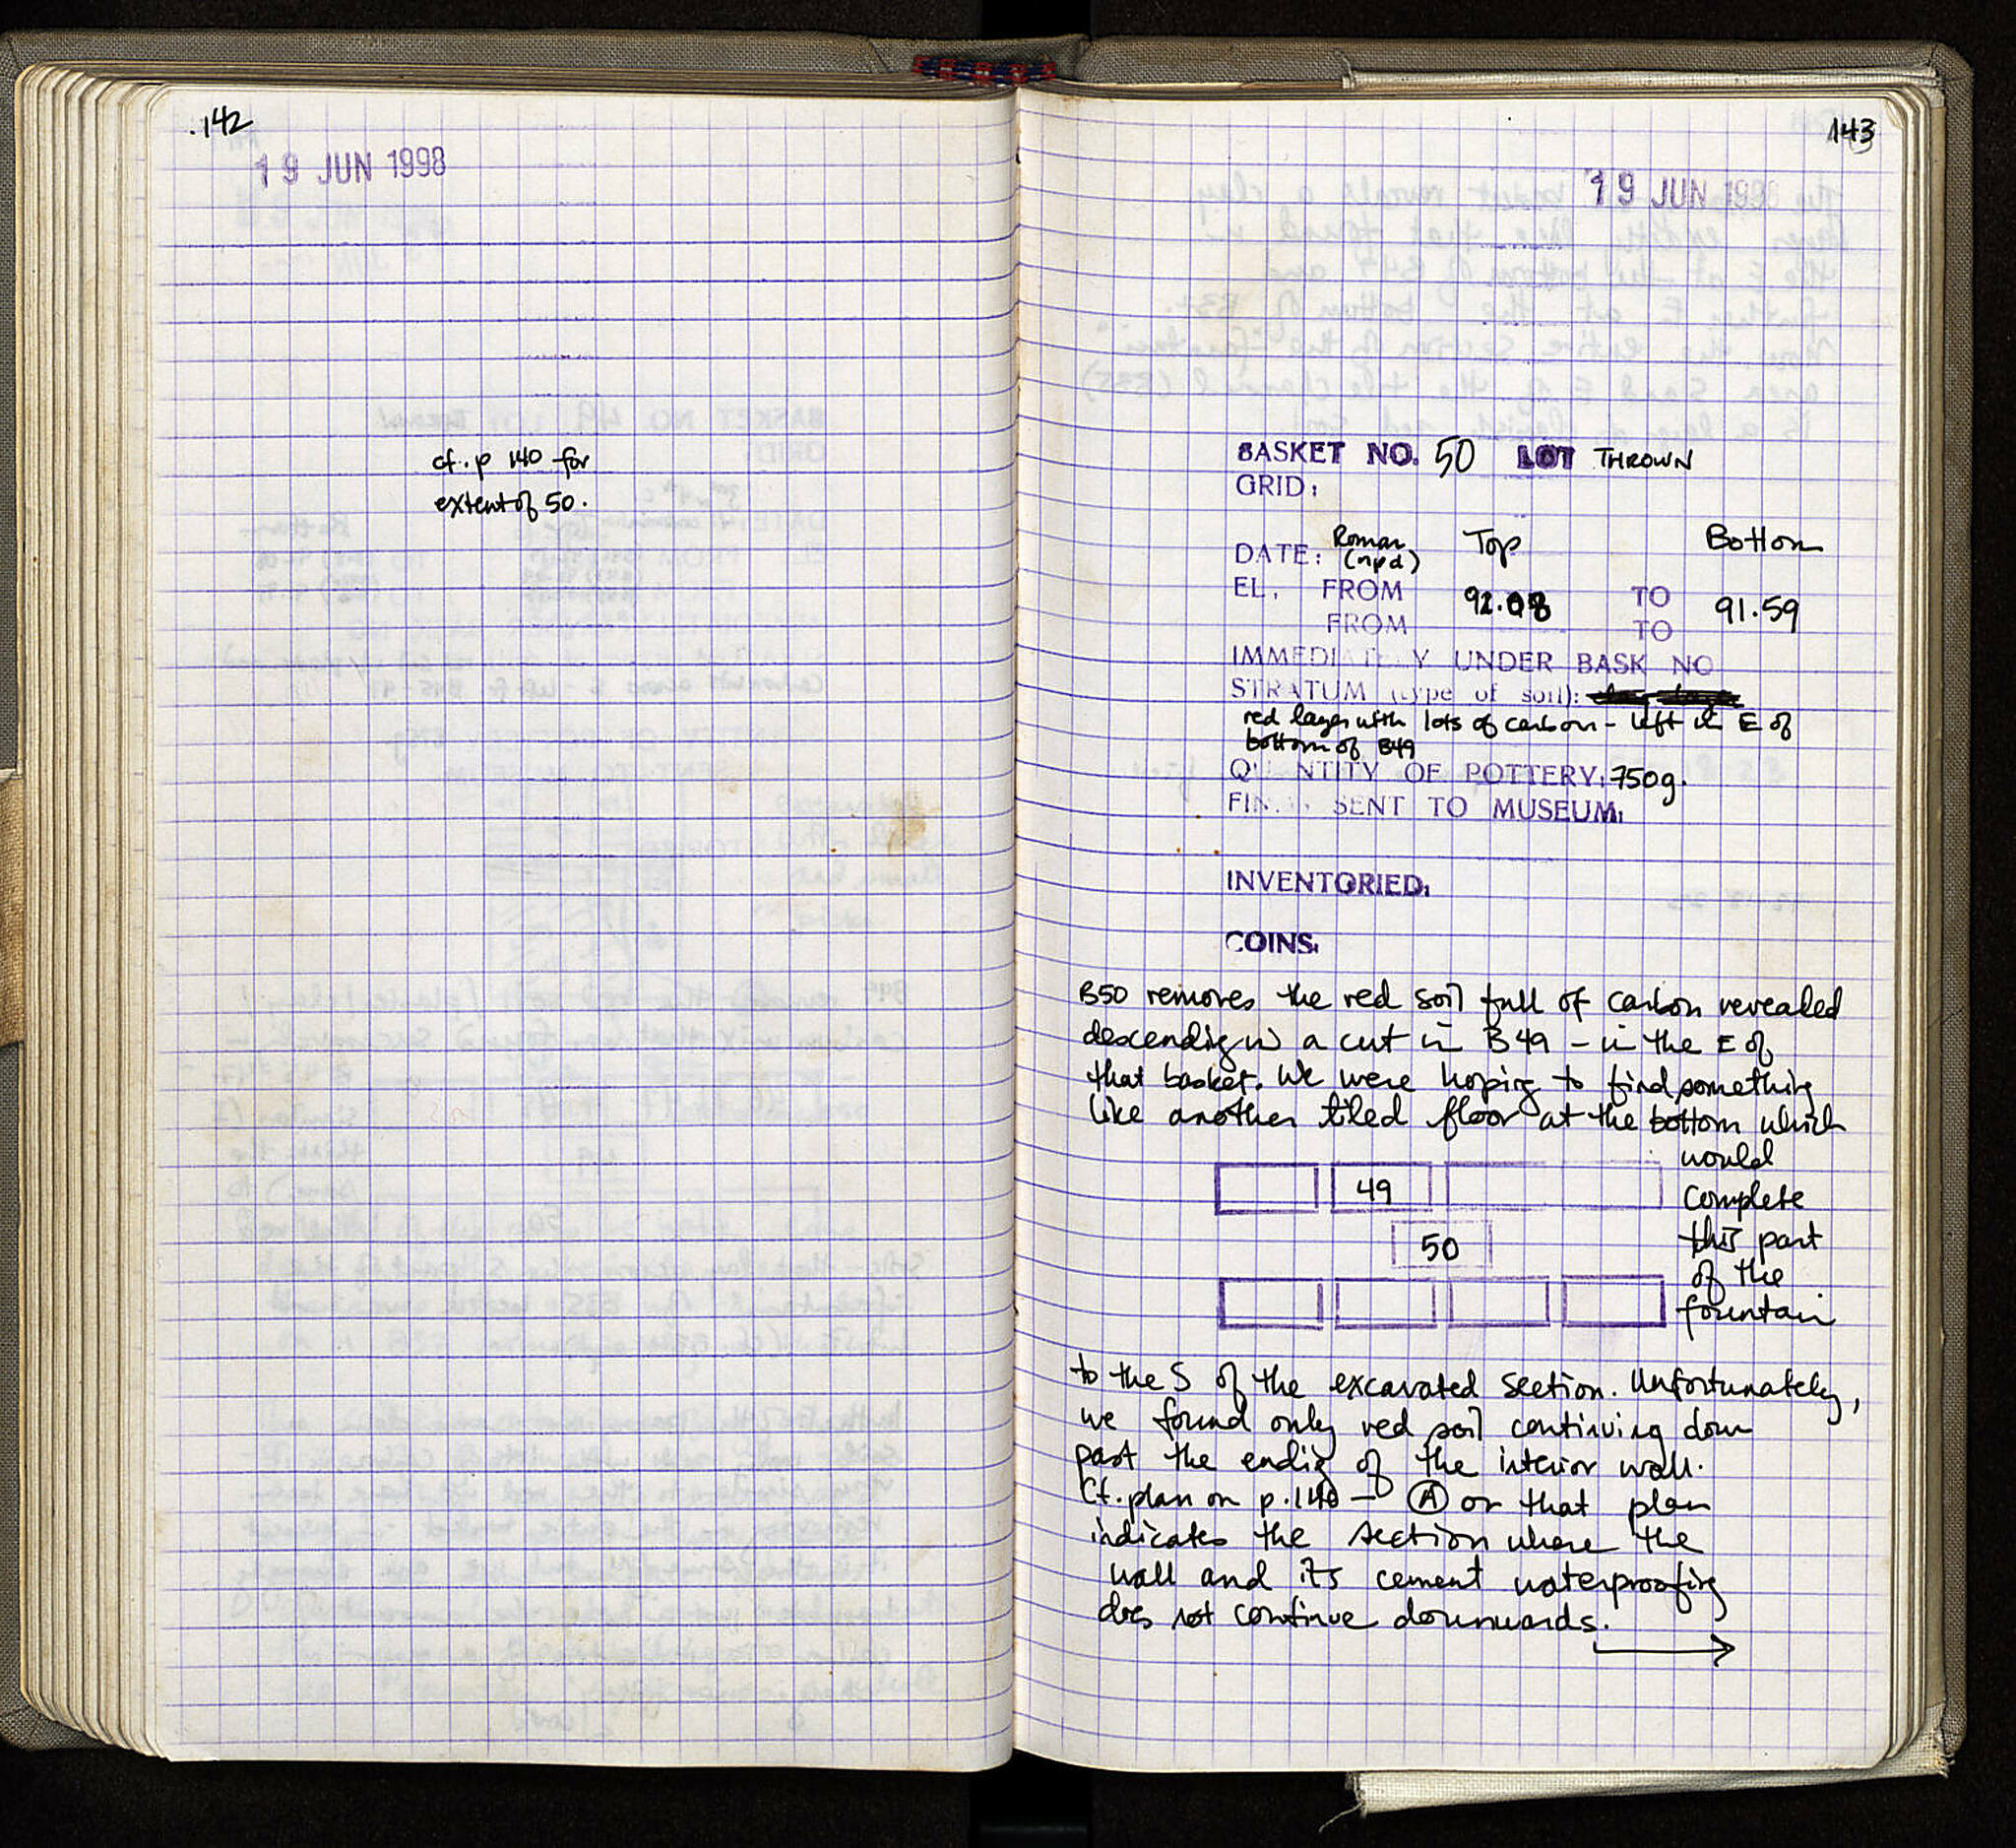 142
19 JUN 1998
cf. p 140 for
extent of 50.
143
19 JUN 1998
BASKET NO. 50 LOT THROWN
GRID:
DATE: Roman (npd) Top Bottom
EL. FROM 92.08 TO 91.59
FROM TO
IMMEDIATELY UNDER BASK NO
STRATUM (type of soil):
red layer with lots of carbon - left in E of
bottom of B49
QUANTITY OF POTTERY: 750g.
FINAL SENT TO MUSEUM:
INVENTORIED:
COINS:
B50 removes the red soil full of carbon revealed
descending in a cut in B49 - in the E of
that basket. We were hoping to find something
like another tiled floor at the bottom which
would
49
complete
50
this part
of the
fountain
to the S of the excavated section. Unfortunately,
we found only red soil continuing down
past the ending of the interior wall.
Cf. plan on p.140 → (A) on that plan
indicates the section where the
wall and its cement waterproofing
does not continue downwards. →